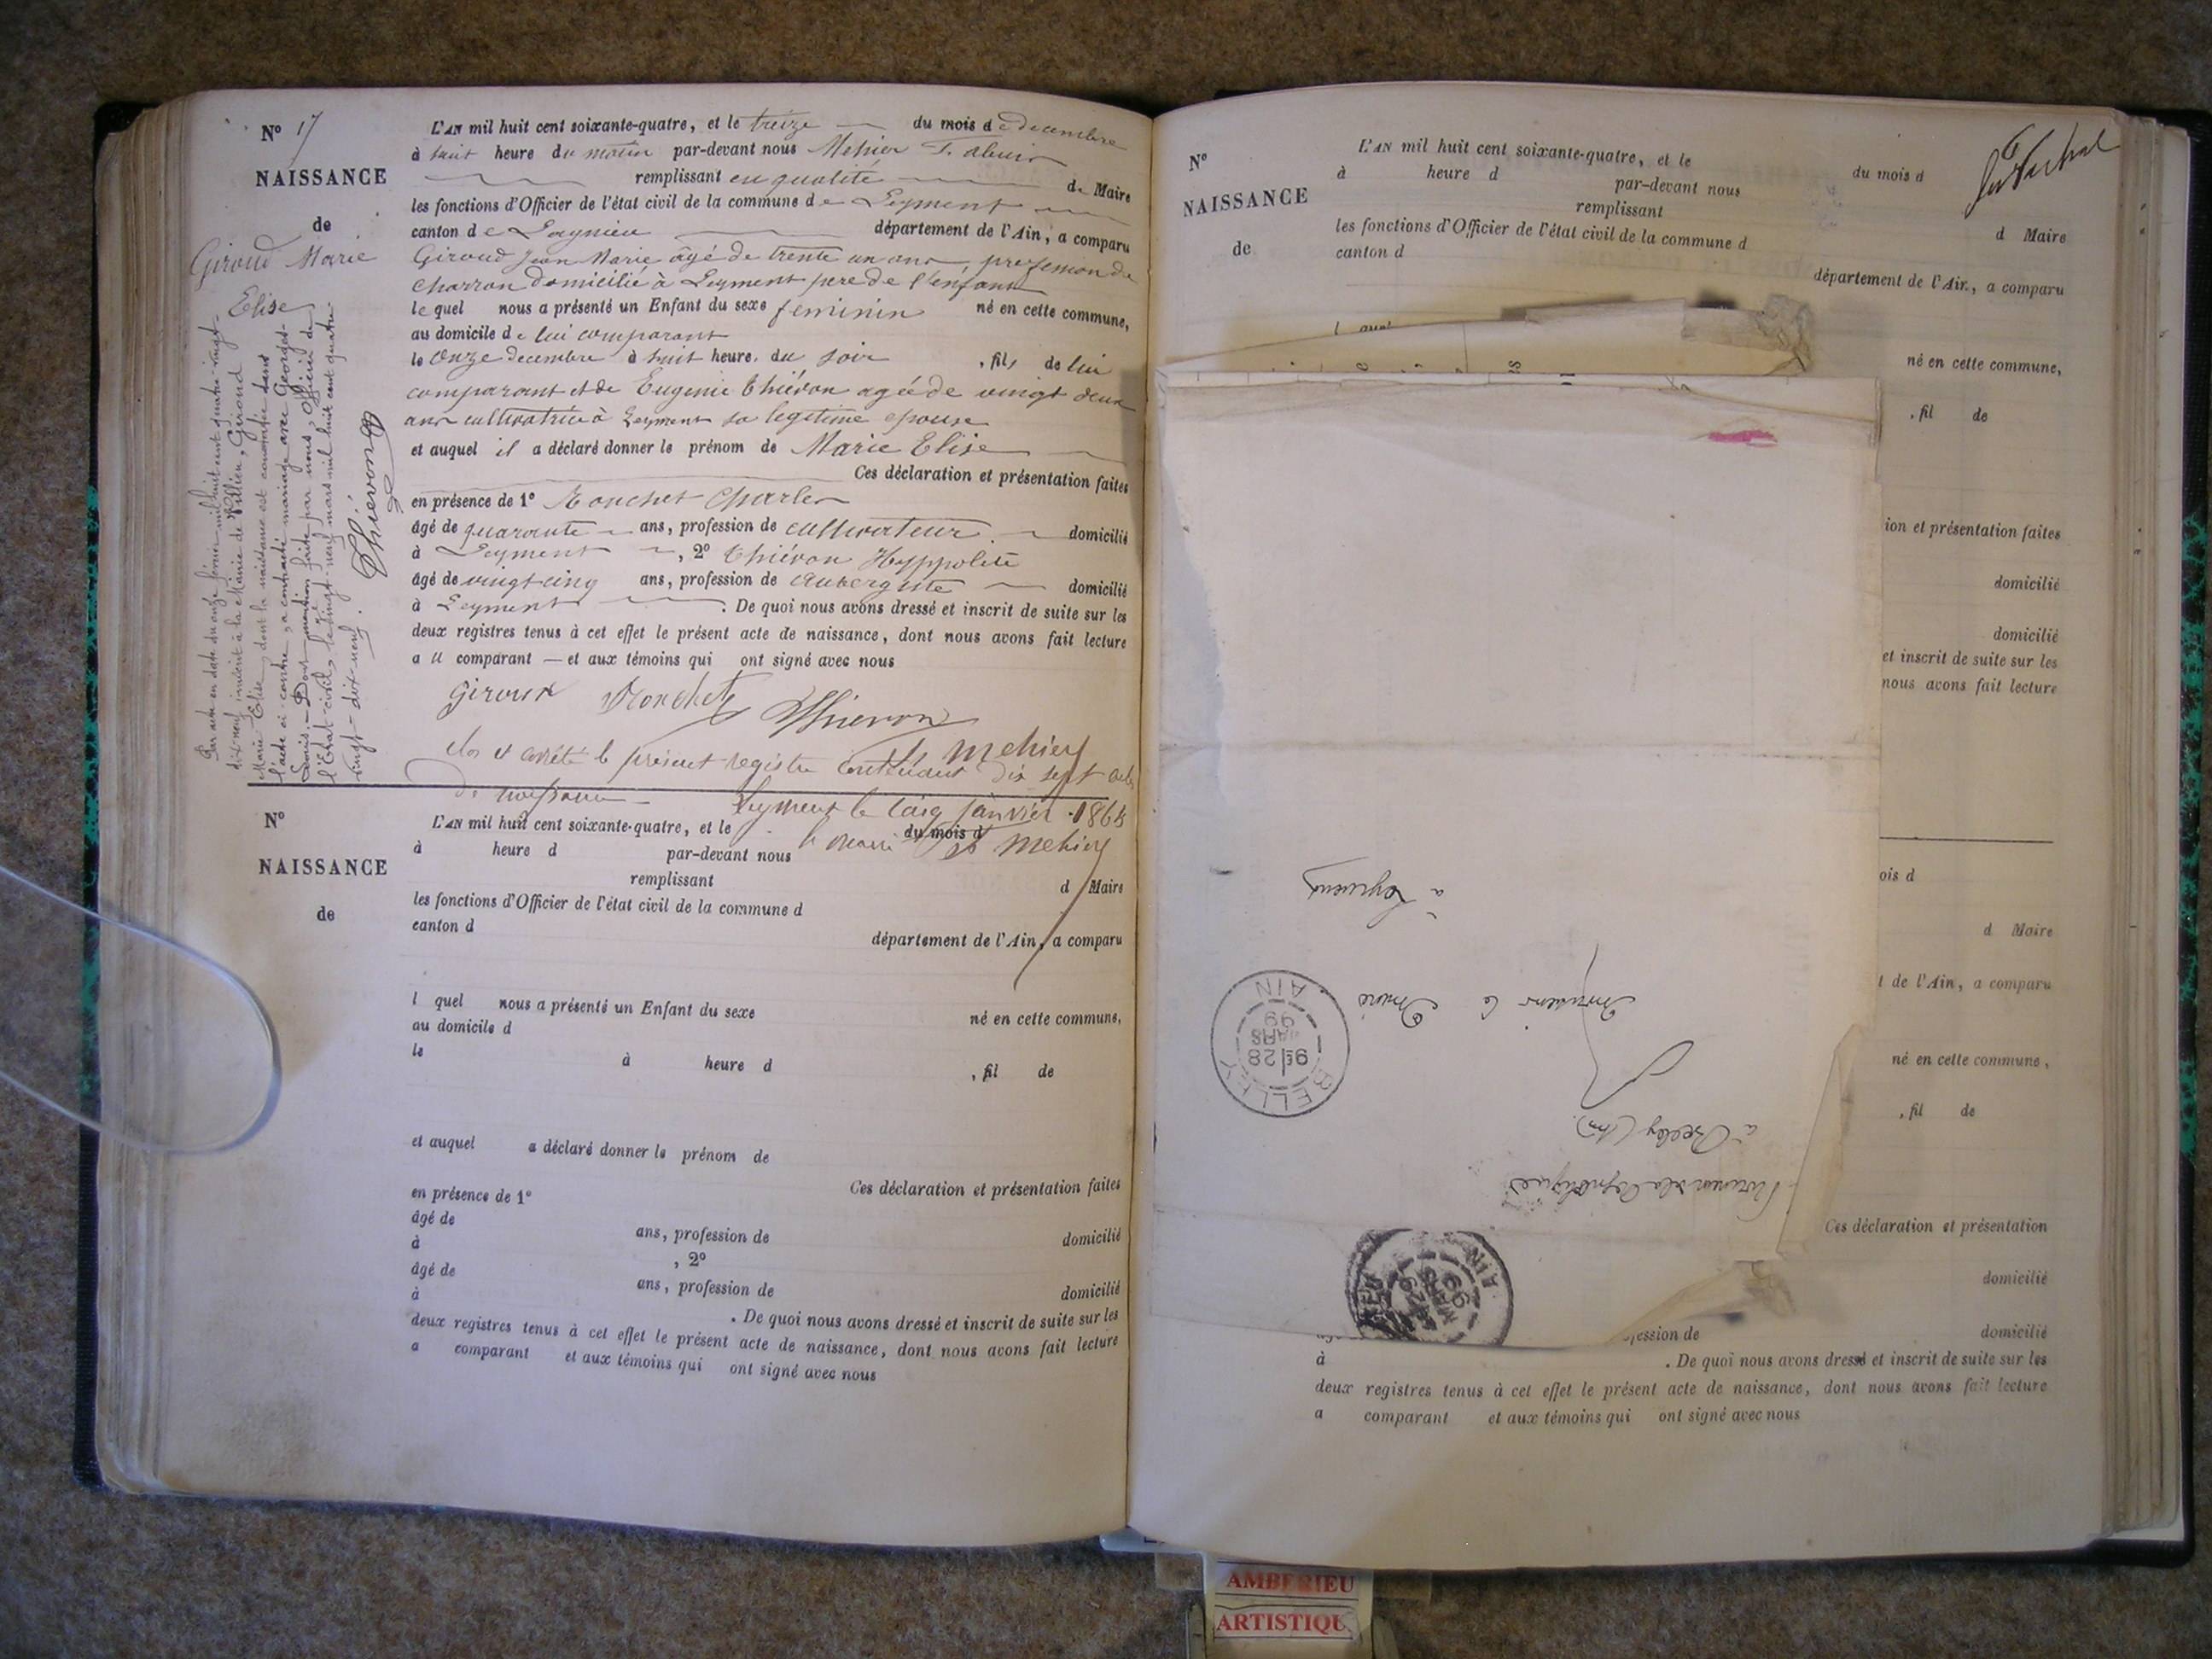 N° 17
NAISSANCE
de
Giroud Marie
Elise
L'AN mil huit cent soixante-quatre, et le treize du mois de decembre
à huit heure du matin par-devant nous Mehier
remplissant en qualité de Maire
les fonctions d'Officier de l'état civil de la commune de Leyment
canton de Lagnieu département de l'Ain, a comparu
Giroud Jean Marie agé de trente un ans, profession de
charron domicilié à Leyment pere de l'enfant
lequel nous a présenté un Enfant du sexe feminin né en cette commune,
au domicile de lui comparant
le onze decembre à huit heure du soir, fils de lui
comparant et de Eugenie Thiévon agée de vingt deux
ans cultivatrice à Leyment sa legitime epouse
et auquel il a déclaré donner le prénom de Marie Elise
Ces déclaration et présentation faites
en présence de 1° Ronchet Charles
âgé de quarante ans, profession de cultivateur domicilié
à Leyment, 2° Thiévon Hyppolite
âgé de vingt cinq ans, profession de Aubergiste domicilié
à Leyment. De quoi nous avons dressé et inscrit de suite sur les
deux registres tenus à cet effet le présent acte de naissance, dont nous avons fait lecture
au comparant — et aux témoins qui ont signé avec nous
Giroud Ronchet Thievon
Mehier
Clos et arrêté le présent registre contenant dix sept actes
de naissance Leyment le cinq janvier 1865
le maire Mehier
Par acte en date du onze février mil huit cent quatre-vingt-
dix-neuf, inscrit à la Mairie de Villieu, Giroud
Marie Elise, dont la naissance est constatée dans
l'acte ci-contre, a contracté mariage avec Georges
Louis. Dont mention faite par nous, Officier de
l'Etat-civil, le vingt-neuf mars mil huit cent quatre-
vingt-dix-neuf.
Thiévon
N°
NAISSANCE
de
L'AN mil huit cent soixante-quatre, et le du mois d
à heure d par-devant nous
remplissant d Maire
les fonctions d'Officier de l'état civil de la commune d
canton d département de l'Ain, a comparu
l quel nous a présenté un Enfant du sexe né en cette commune,
au domicile d
le à heure d , fil de
et auquel a déclaré donner le prénom de
Ces déclaration et présentation faites
en présence de 1°
âgé de ans, profession de domicilié
à , 2°
âgé de ans, profession de domicilié
à . De quoi nous avons dressé et inscrit de suite sur les
deux registres tenus à cet effet le présent acte de naissance, dont nous avons fait lecture
a comparant et aux témoins qui ont signé avec nous
N°
NAISSANCE
de
L'AN mil huit cent soixante-quatre, et le du mois d
à heure d par-devant nous
remplissant d Maire
les fonctions d'Officier de l'état civil de la commune d
canton d département de l'Ain, a comparu
l quel
né en cette commune,
, fil de
ion et présentation faites
domicilié
domicilié
et inscrit de suite sur les
nous avons fait lecture
ois d
d Maire
t de l'Ain, a comparu
né en cette commune,
, fil de
Ces déclaration et présentation
domicilié
fession de domicilié
à . De quoi nous avons dressé et inscrit de suite sur les
deux registres tenus à cet effet le présent acte de naissance, dont nous avons fait lecture
a comparant et aux témoins qui ont signé avec nous
Procureur de la République
à Belley (Ain).
Monsieur le Maire
à Leyment
BELLEY
28
MARS
99
AIN
MARS
99
AIN
AMBERIEU
ARTISTIQU